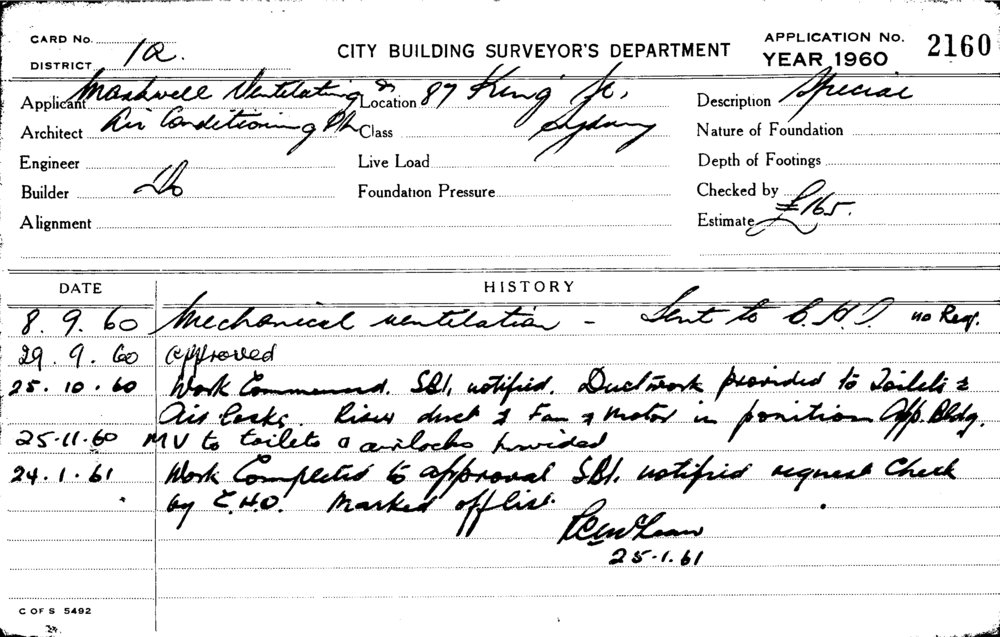 CARD No.
DISTRICT 1a.
CITY BUILDING SURVEYOR'S DEPARTMENT
APPLICATION No. 2160
YEAR 1960
Applicant Mashwell Ventilating & Location 87 King St, Description Special
Architect Air Conditioning P/L Class Sydney Nature of Foundation
Engineer Live Load Depth of Footings
Builder Do Foundation Pressure Checked by
Alignment Estimate £165.
DATE HISTORY
8.9.60 Mechanical ventilation - Sent to C.H.I. no Req.
29.9.60 approved
25.10.60 Work Commenced. SBI. notified. Ductwork provided to Toilets &
Air locks. Riser duct & Fan & Motor in position App. Bldg.
25.11.60 MV to toilets & airlocks provided
24.1.61 Work Completed to approval SBI. notified request Check
by C.H.O. Marked off list.
25.1.61
C OF S 5492